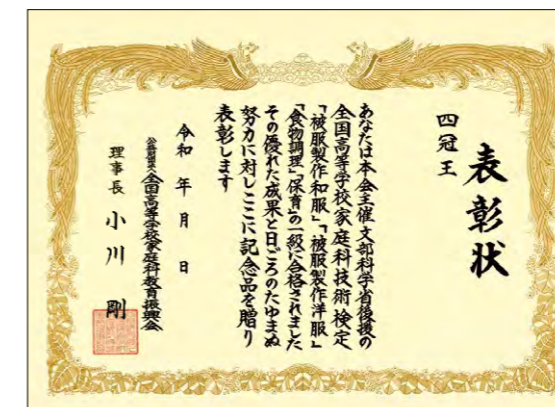 表彰状
四冠王
あなたは本会主催文部科学省後援の
全国高等学校家庭科技術検定
「被服製作和服」「被服製作洋服」
「食物調理」「保育」の一級に合格されました
その優れた成果と日ごろのたゆまぬ
努力に対しここに記念品を贈り
表彰します
令和 年 月 日
公益財団法人 全国高等学校家庭科教育振興会
理事長 小川 剛